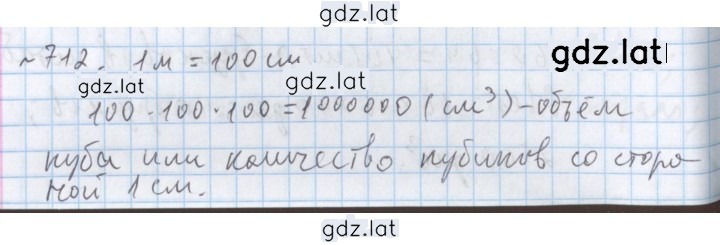 gdz.lat
№712. 1м = 100 см
gdz.lat
gdz.lat
100 · 100 · 100 = 1000000 (см³) - объём
куба или количество кубиков со сторо
ной 1 см.
gdz.lat
gdz.lat